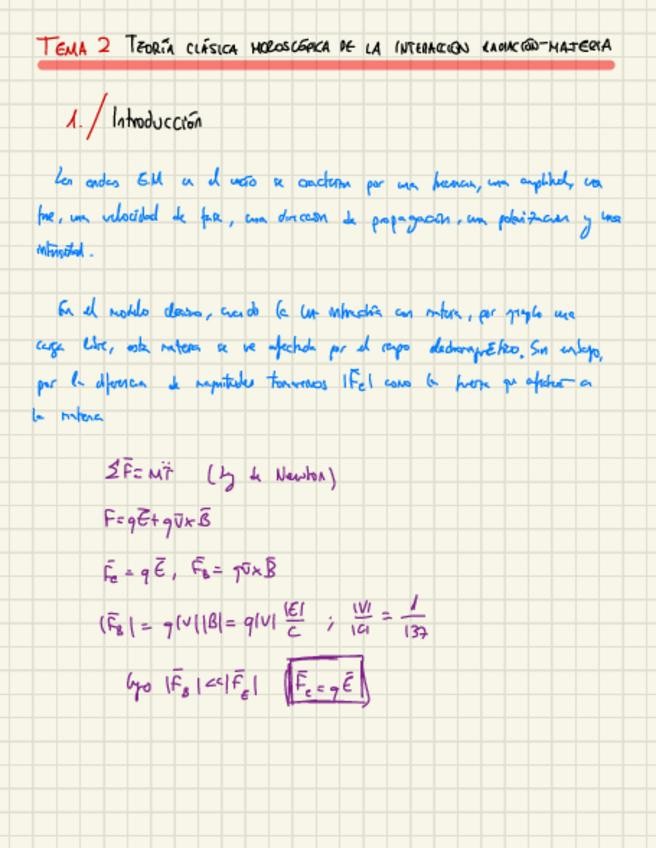 TEMA 2 TEORÍA CLÁSICA MICROSCÓPICA DE LA INTERACCIÓN RADIACIÓN-MATERIA
1./ Introducción
Las ondas EM en el vacío se caracterizan por una frecuencia, una amplitud, una
fase, una velocidad de fase, una dirección de propagación, una polarización y una
intensidad.
En el modelo clásico, cuando la luz interactúa con materia, por ejemplo una
carga libre, esta materia se ve afectada por el campo electromagnético. Sin embargo,
por la diferencia de magnitudes tomaremos |F̄e| como la fuerza que afecta a
la materia
ΣF̄ = m r̈ (Ley de Newton)
F = qĒ + qv̄ x B̄
F̄e = qĒ, F̄B = qv̄ x B̄
|F̄B| = q|v||B| = q|v| |E|/C ; |V|/|C| = 1/137
luego |F̄B| << |F̄E| F̄e = qĒ